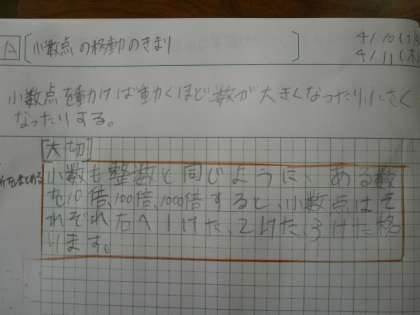 小数点の移動のきまり
4/10(水)
4/11(木)
小数点を動けば動くほど数が大きくなったり小さく
なったりする。
大切
小数も整数と同じように、ある数
を10倍、100倍、1000倍すると、小数点はそ
れぞれ右へ1けた、2けた、3けた移
ります。